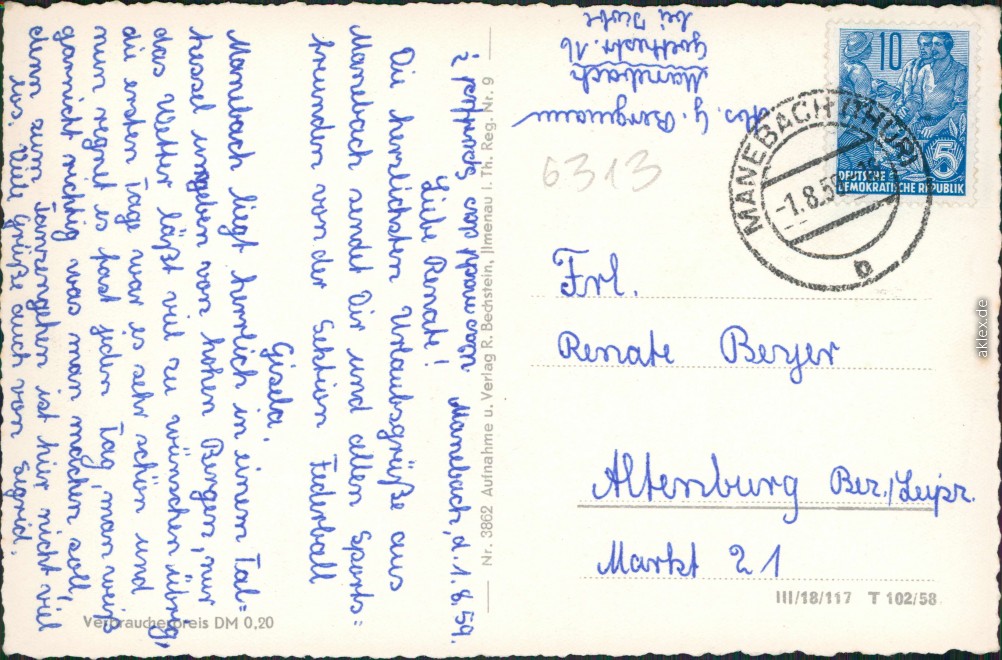 Manebach, d. 1. 8. 59.
Liebe Renate!
Die herzlichsten Urlaubsgrüße aus
Manebach sendet Dir und allen Sports=
freunden von der Sektion Federball
Gisela.
Manebach liegt herrlich in einem Tal=
kessel umgeben von hohen Bergen, nur
das Wetter läßt viel zu wünschen übrig,
die ersten Tage war es sehr schön und
nun regnet es fast jeden Tag, man weiß
garnicht richtig was man machen soll,
denn zum Tanzengehen ist hier nicht viel
los. Viele Grüße auch von Sigrid.
Verbraucherpreis DM 0,20
Nr. 3862 Aufnahme u. Verlag R. Bechstein, Ilmenau i. Th. Reg. Nr. 9
Abs. G. Bergmann
Manebach
Goethestr. 16
bei
6313
10
5
DEUTSCHE
DEMOKRATISCHE REPUBLIK
MANEBACH (THÜR)
-1.8.59
b
Frl.
Renate Beyer
Altenburg Bez./Leipz.
Markt 21
III/18/117 T 102/58
aklex.de